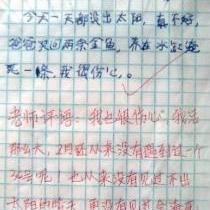 今天一天都没出太阳，真不好，
爸爸买回两条金鱼，养在水缸
死一条，我很伤心。
老师评语：我也很伤心，我活
那么大，2月还从来没有遇到过一个
30号呢！也从来没有见过不出
太阳的